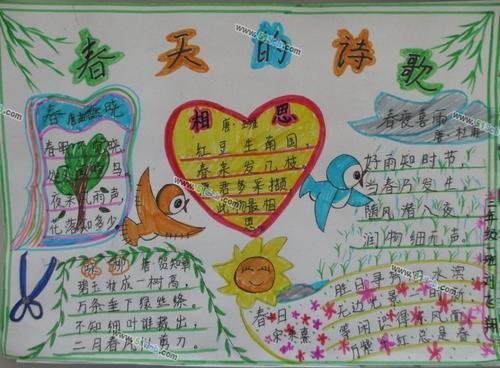 春天的诗歌
春晓
春眠 晓
处处 鸟
夜来 雨声
花落知多少
相思
唐 王维
红豆生南国,
春来发几枝
君多采撷
此物最相
思
春夜喜雨
唐 杜甫
好雨知时节,
当春乃发生
随风潜入夜
润物细无声。
咏柳 唐 贺知章
碧玉妆成一树高,
万条垂下绿丝绦,
不知细叶谁裁出,
二月春风似剪刀。
春日
宋 朱熹
胜日寻 水滨
无边光景一时新
等闲识得 风面
万紫 红总是春